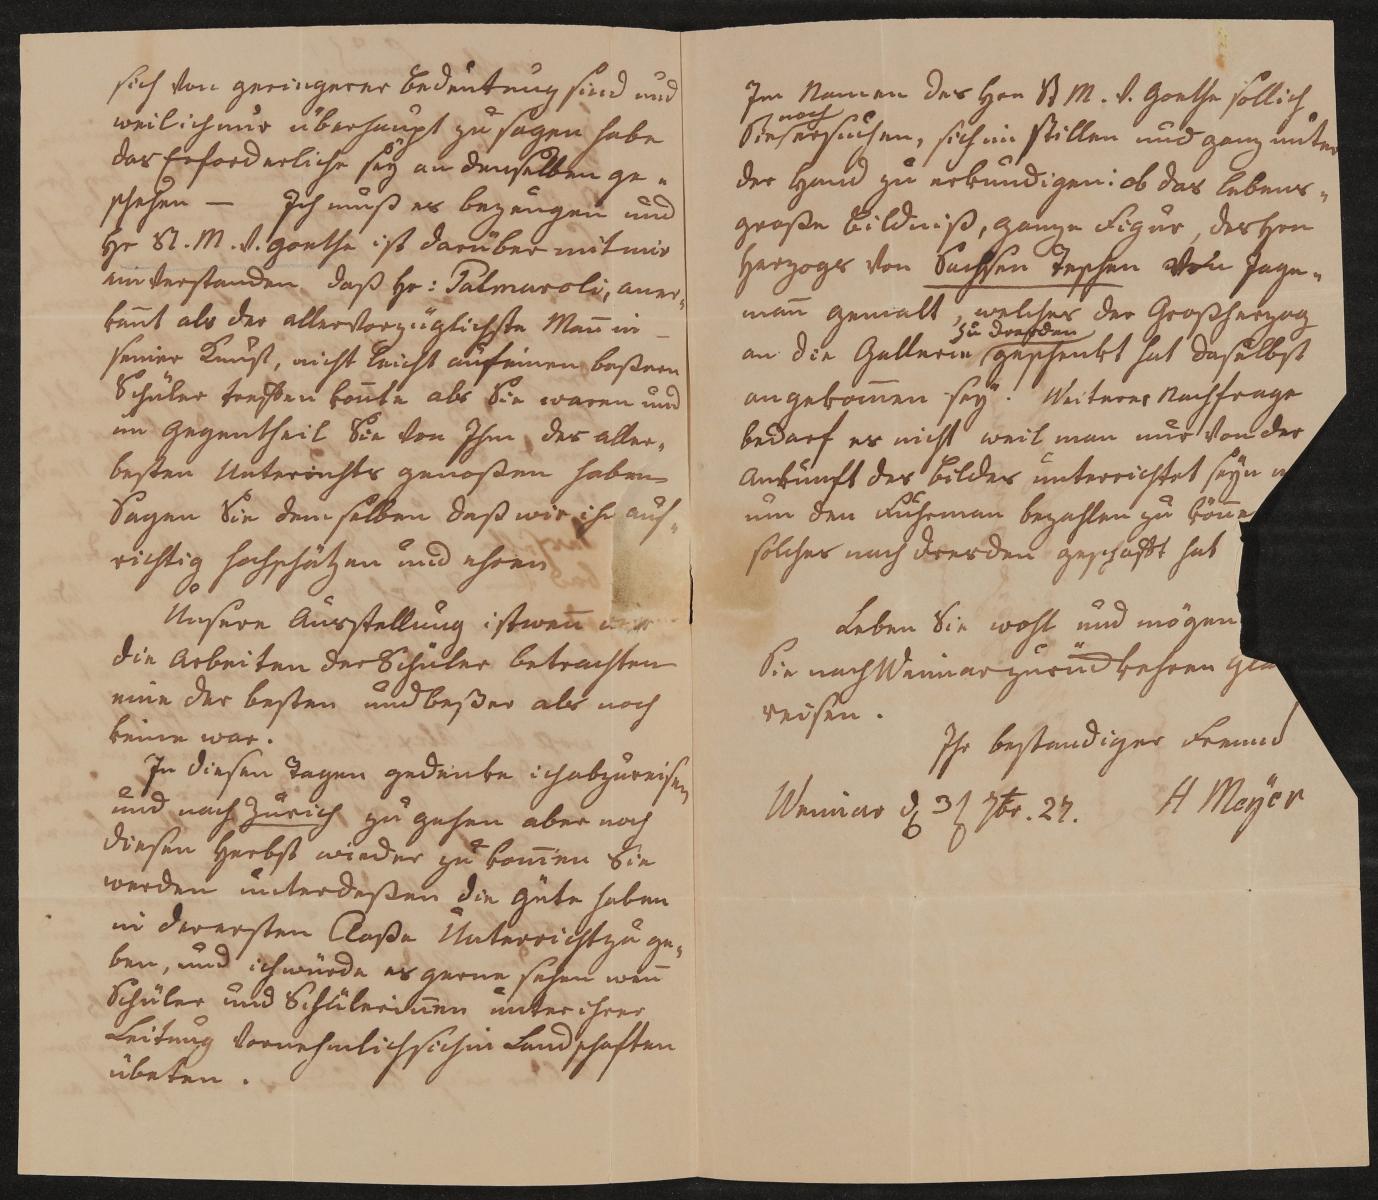 sich von geringerer Bedeutung sind und
weil ich nur überhaupt zu sagen habe
das Erforderliche sey an denselben ge-
schehen — Ich muß es bezeugen und
Hr St. M. v. Goethe ist darüber mit mir
einverstanden daß Hr: Palmaroli, aner-
kannt als der allervorzüglichste Mann in
seiner Kunst, nicht leicht auf einen beßern
Schüler treffen konnte als Sie waren und
im Gegentheil Sie von Ihm, des aller-
besten Unterrichts genoßen haben
Sagen Sie demselben daß wir ihn auf-
richtig hochschätzen und ehren
Unsere Ausstellung ist wenn wir
die Arbeiten der Schüler betrachten
eine der besten und beßer als noch
keine war.
In diesen Tagen gedenke ich abzureisen
und nach Zürich zu gehen aber noch
diesen Herbst wieder zu kommen Sie
werden unterdeßen die Güte haben
in der ersten Claße Unterricht zu ge-
ben, und ich würde es gerne sehen wenn
Schüler und Schülerinnen unter ihrer
Leitung vornehmlich sich in Landschaften
übeten.
Im Namen des Hrn St M. v. Goethe soll ich
Sie noch ersuchen, sich im stillen und ganz unter
der Hand zu erkundigen: ob das lebens-
große Bildniß, ganze Figur, des Hrn
Herzogs von Sachsen Teschen von Jage-
mann gemalt, welches der Großherzog
an die Gallerie zu dresden geschenkt hat daselbst
angekommen sey. Weiterer Nachfrage
bedarf es nicht weil man nur von der
Ankunft des Bildes unterrichtet seyn
um den Fuhrman bezahlen zu könne
solches nach dresden geschafft hat
Leben Sie wohl und mögen
Sie nach Weimar zurückkehren
reisen.
Ihr beständiger Freund
Weimar d 31 7br. 27. H Meyer